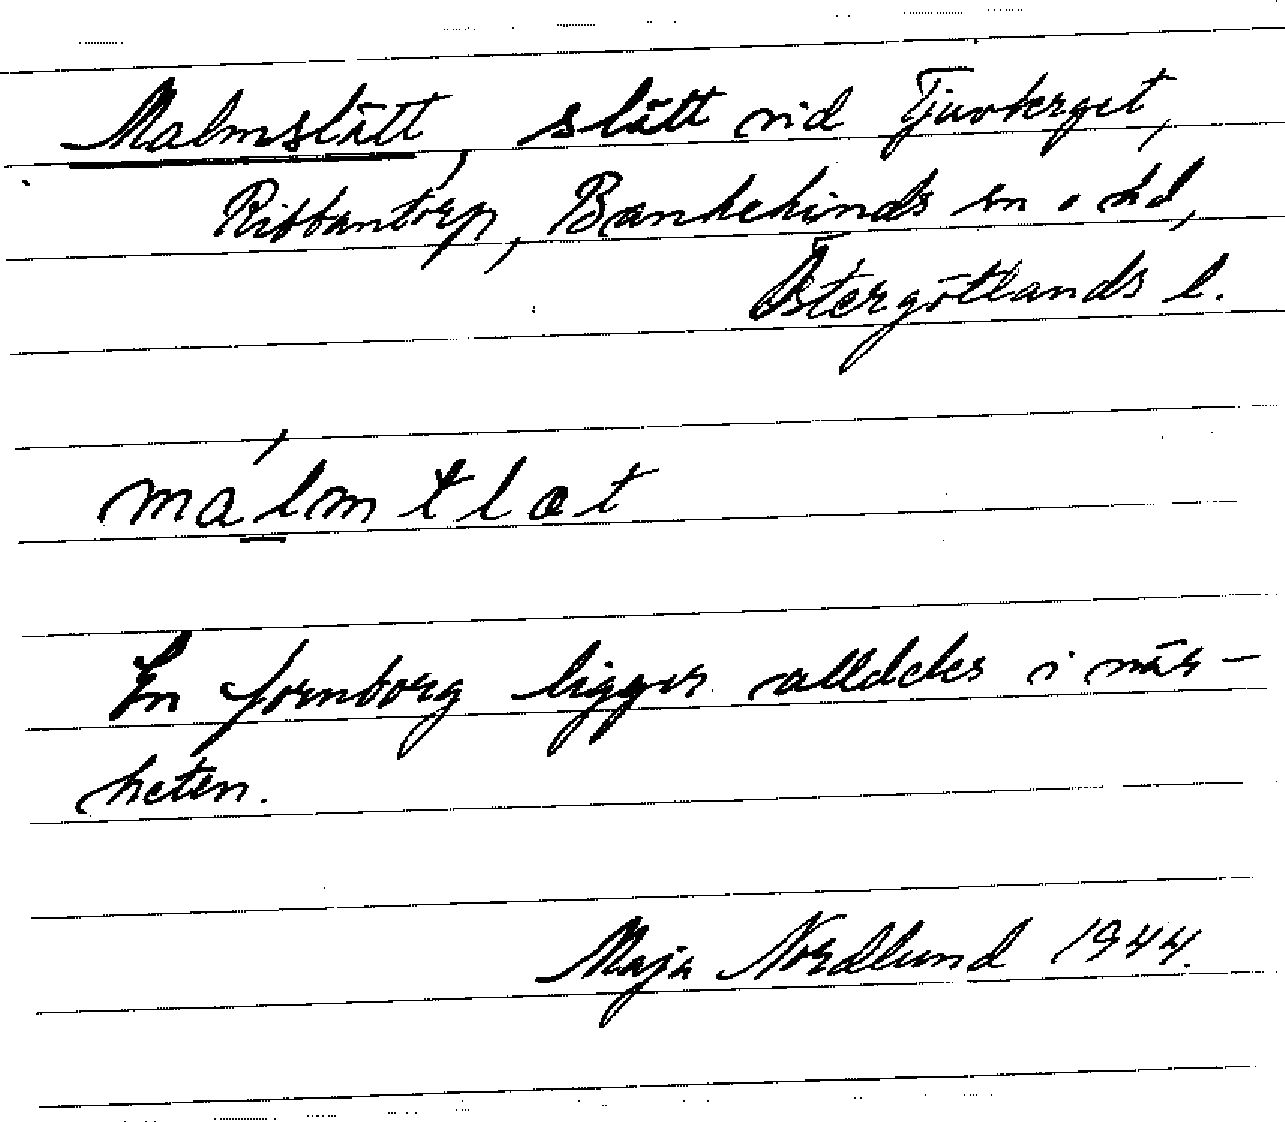 Malmslätt, slätt vid Tjuvberget,
Ribbantorp, Bankekinds sn o hd,
Östergötlands l.
málmtlæt
En fornborg ligger alldeles i när-
heten.
Maja Nordlund 1944.